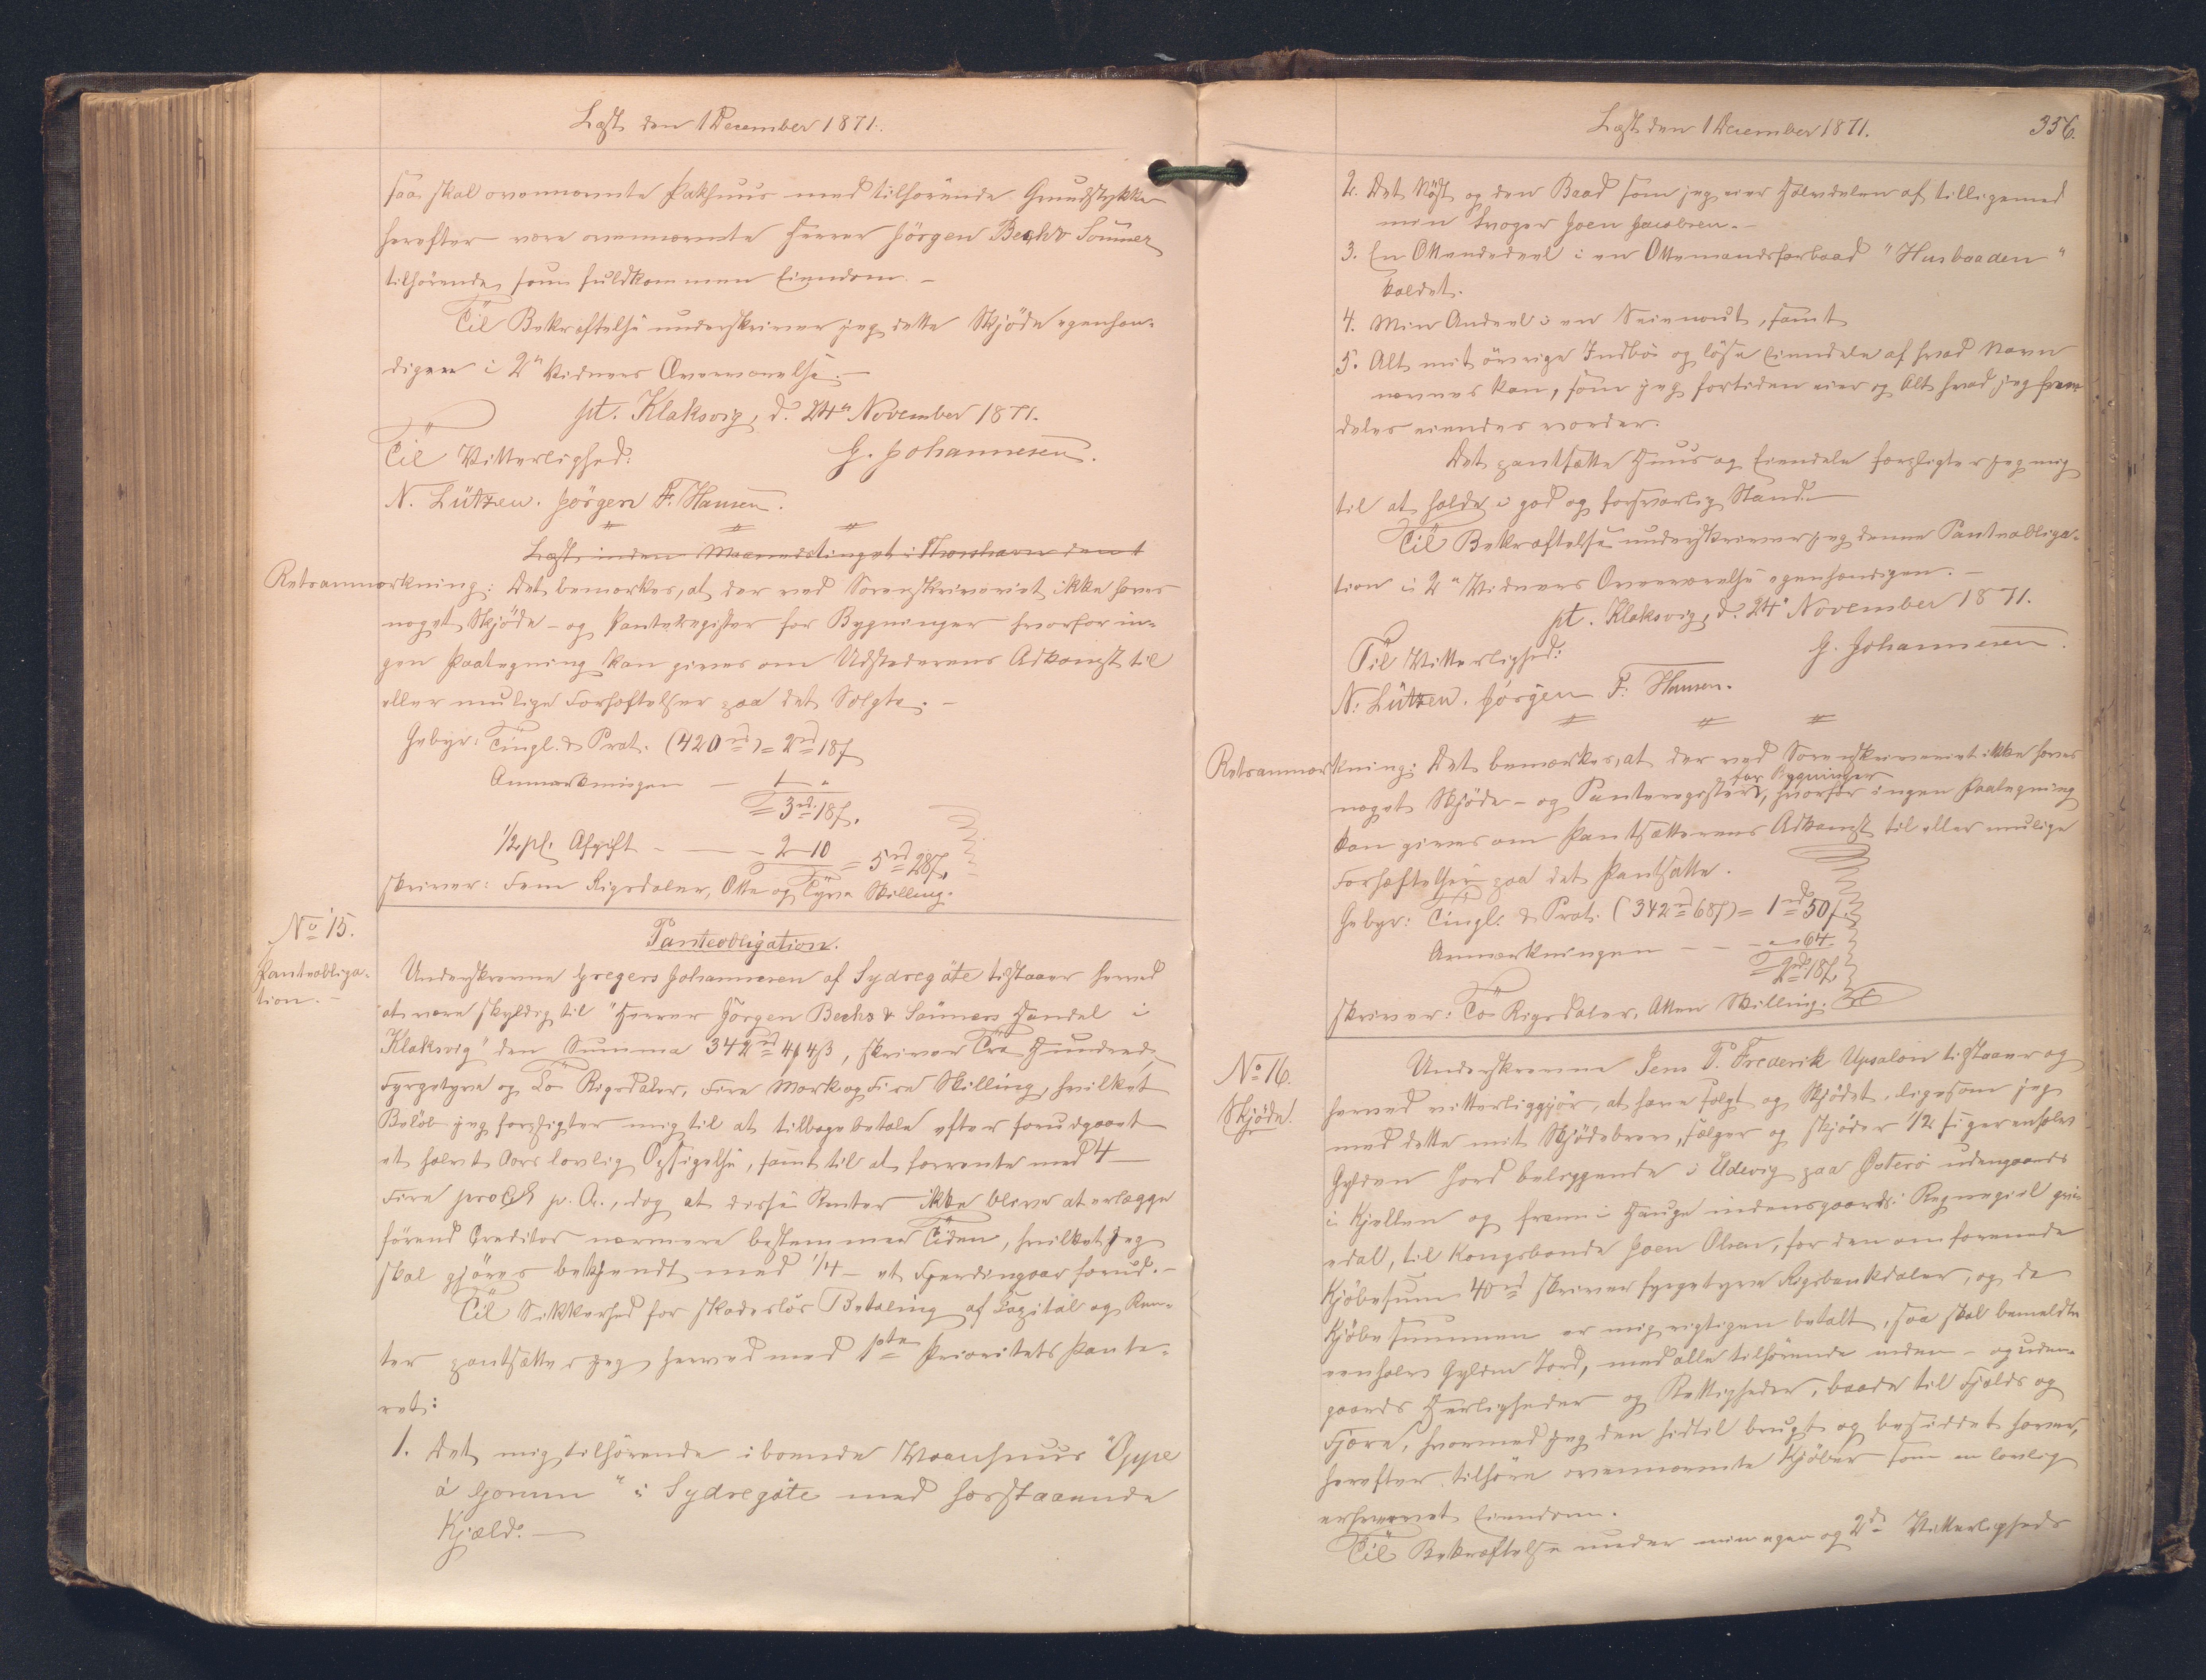 Læst den 1 December 1871.
saa skal ovennævnte Pakhuus med tilhörende Grundstykke
herefter være ovennævnte Herrer Jörgen Bechs Sönner
tilhörende som fuldkommen Eiendom. -
Til Bekræftelse underskriver jeg dette Skjöde egenhæn-
digen i 2n Vidners Overværelse. -
pt. Klaksvig, d. 24n November 1871.
Til Vitterlighed: G. Johannesen.
N. Lützen. Jörgen F. Hansen.
Læst inden Maanedstinget i Thorshavn den 1
Retsanmærkning: Det bemærkes, at der ved Sorenskriveriet ikke haves
noget Skjöde- og Panteregister for Bygninger hvorfor in-
gen Paategning kan gives om Udstederens Adkomst til
eller mulige Forhæftelser paa det Solgte. -
Gebyr: Tingl. & Prot. (420 rd) = 2 rd 18 ſ
Anmærkningen — 1 "
= 3 rd 18 ſ.
1/2 pCt. Afgift - — - 2 - 10 = 5 rd 28 ſ.
skriver: Fem Rigsdaler, Otte og Tyve Skilling.
No 15.
Panteobliga-
tion. -
Panteobligation.
Underskrevne Gregers Johannesen af Sydregöte tilstaaer herved
at være skyldig til "Herrer Jörgen Bechs & Sönners Handel i
Klaksvig" den Summa 342 rd 4 ₰ 4 ß, skriver Tre Hundrede
Fyrgetyve og To Rigsdaler, Fire Mark og Fire Skilling, hvilket
Belöb jeg forpligter mig til at tilbagebetale efter forudgaaet
et halvt Aars lovlig Opsigelse, samt til at forrente med 4 -
Fire proCt p. A., dog at disse Renter ikke blive at erlægge
förend Creditor nærmere bestemmer Tiden, hvilket jeg
skal gjöres bekjendt med 1/4 - et Fjerdingaar forud. -
Til Sikkerhed for skadeslös Betaling af Capital og Ren-
ter pantsætter jeg herved med 1ste Prioritets Pante-
ret:
1. Det mig tilhörende iboende Vaanhuus "Uppe
á Gonum" i Sydregöte med hosstaaende
Kjæld. —
Læst den 1 December 1871. 356.
2. Det Nöst og den Baad som jeg eier Halvdelen af tilligemed
min Svoger Joen Jacobsen. -
3. En Ottendedeel i en Ottemandsfarbaad "Husbaaden"
kaldet.
4. Min Andeel i en Seienout, samt
5. Alt mit övrige Indbo og löse Eiendele af hvad Navn
nævnes kan, som jeg fortiden eier og Alt hvad jeg frem-
deles eiendes vorder.
Det pantsatte Huus og Eiendele forpligter jeg mig
til at holde i god og forsvarlig Stand. —
Til Bekræftelse underskriver jeg denne Panteobliga-
tion i 2n Vidners Overværelse egenhændigen. -
pt. Klaksvig, d. 24n November 1871.
Til Vitterlighed: G. Johannesen.
N. Lützen. Jörgen F. Hansen.
Retsanmærkning: Det bemærkes, at der ved Sorenskriveriet ikke haves
for Bygninger
noget Skjöde- og Panteregister, hvorfor ingen Paategning
kan gives om Pantsætterens Adkomst til eller mulige
Forhæftelser paa det Pantsatte.
Gebyr: Tingl. & Prot. (342 rd 68 ſ) = 1 rd 50 ſ.
Anmærkningen - - - " 64.
= 2 rd 18 ſ.
skriver: To Rigsdaler, Atten Skilling.
No 16.
Skjöde.
Underskrevne Jens P. Frederik Upsalon tilstaaer og
herved vitterliggjör, at have solgt og Skjödet, ligesom jeg
med dette mit Skjödebrev, sælger og skjöder 1/2 siger en halv
Gylden Jord beliggende i Eldevig paa Österö udengaards
i Kjellen og frem i Hauge indengaards i
odal, til Kongsbonde Joen Olsen, for den omforenede
Kjöbesum 40 rd skriver fyrgetyve Rigsbankdaler, og da
Kjöbesummen er mig rigtigen betalt, saa skal bemeldte
een halv Gylden Jord, med alle tilhörende inden- og uden-
gaards Herligheder og Rettigheder, baade til Fjelds og
Fjære, hvormed jeg den hidtil brugt og besiddet haver,
herefter tilhöre ovennævnte Kjöber som en lovlig
erhvervet Eiendom.
Til Bekræftelse under min egen og 2de Vitterligheds